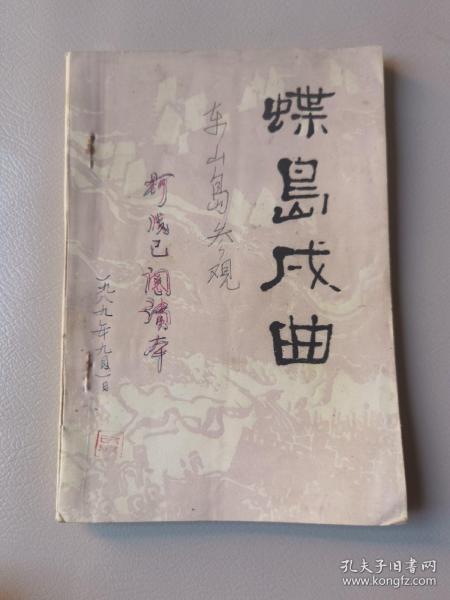 蝶島戍曲
东山岛参观
柯成已阅读本
一九八九年九月一日
孔夫子旧书网
www.kongfz.com